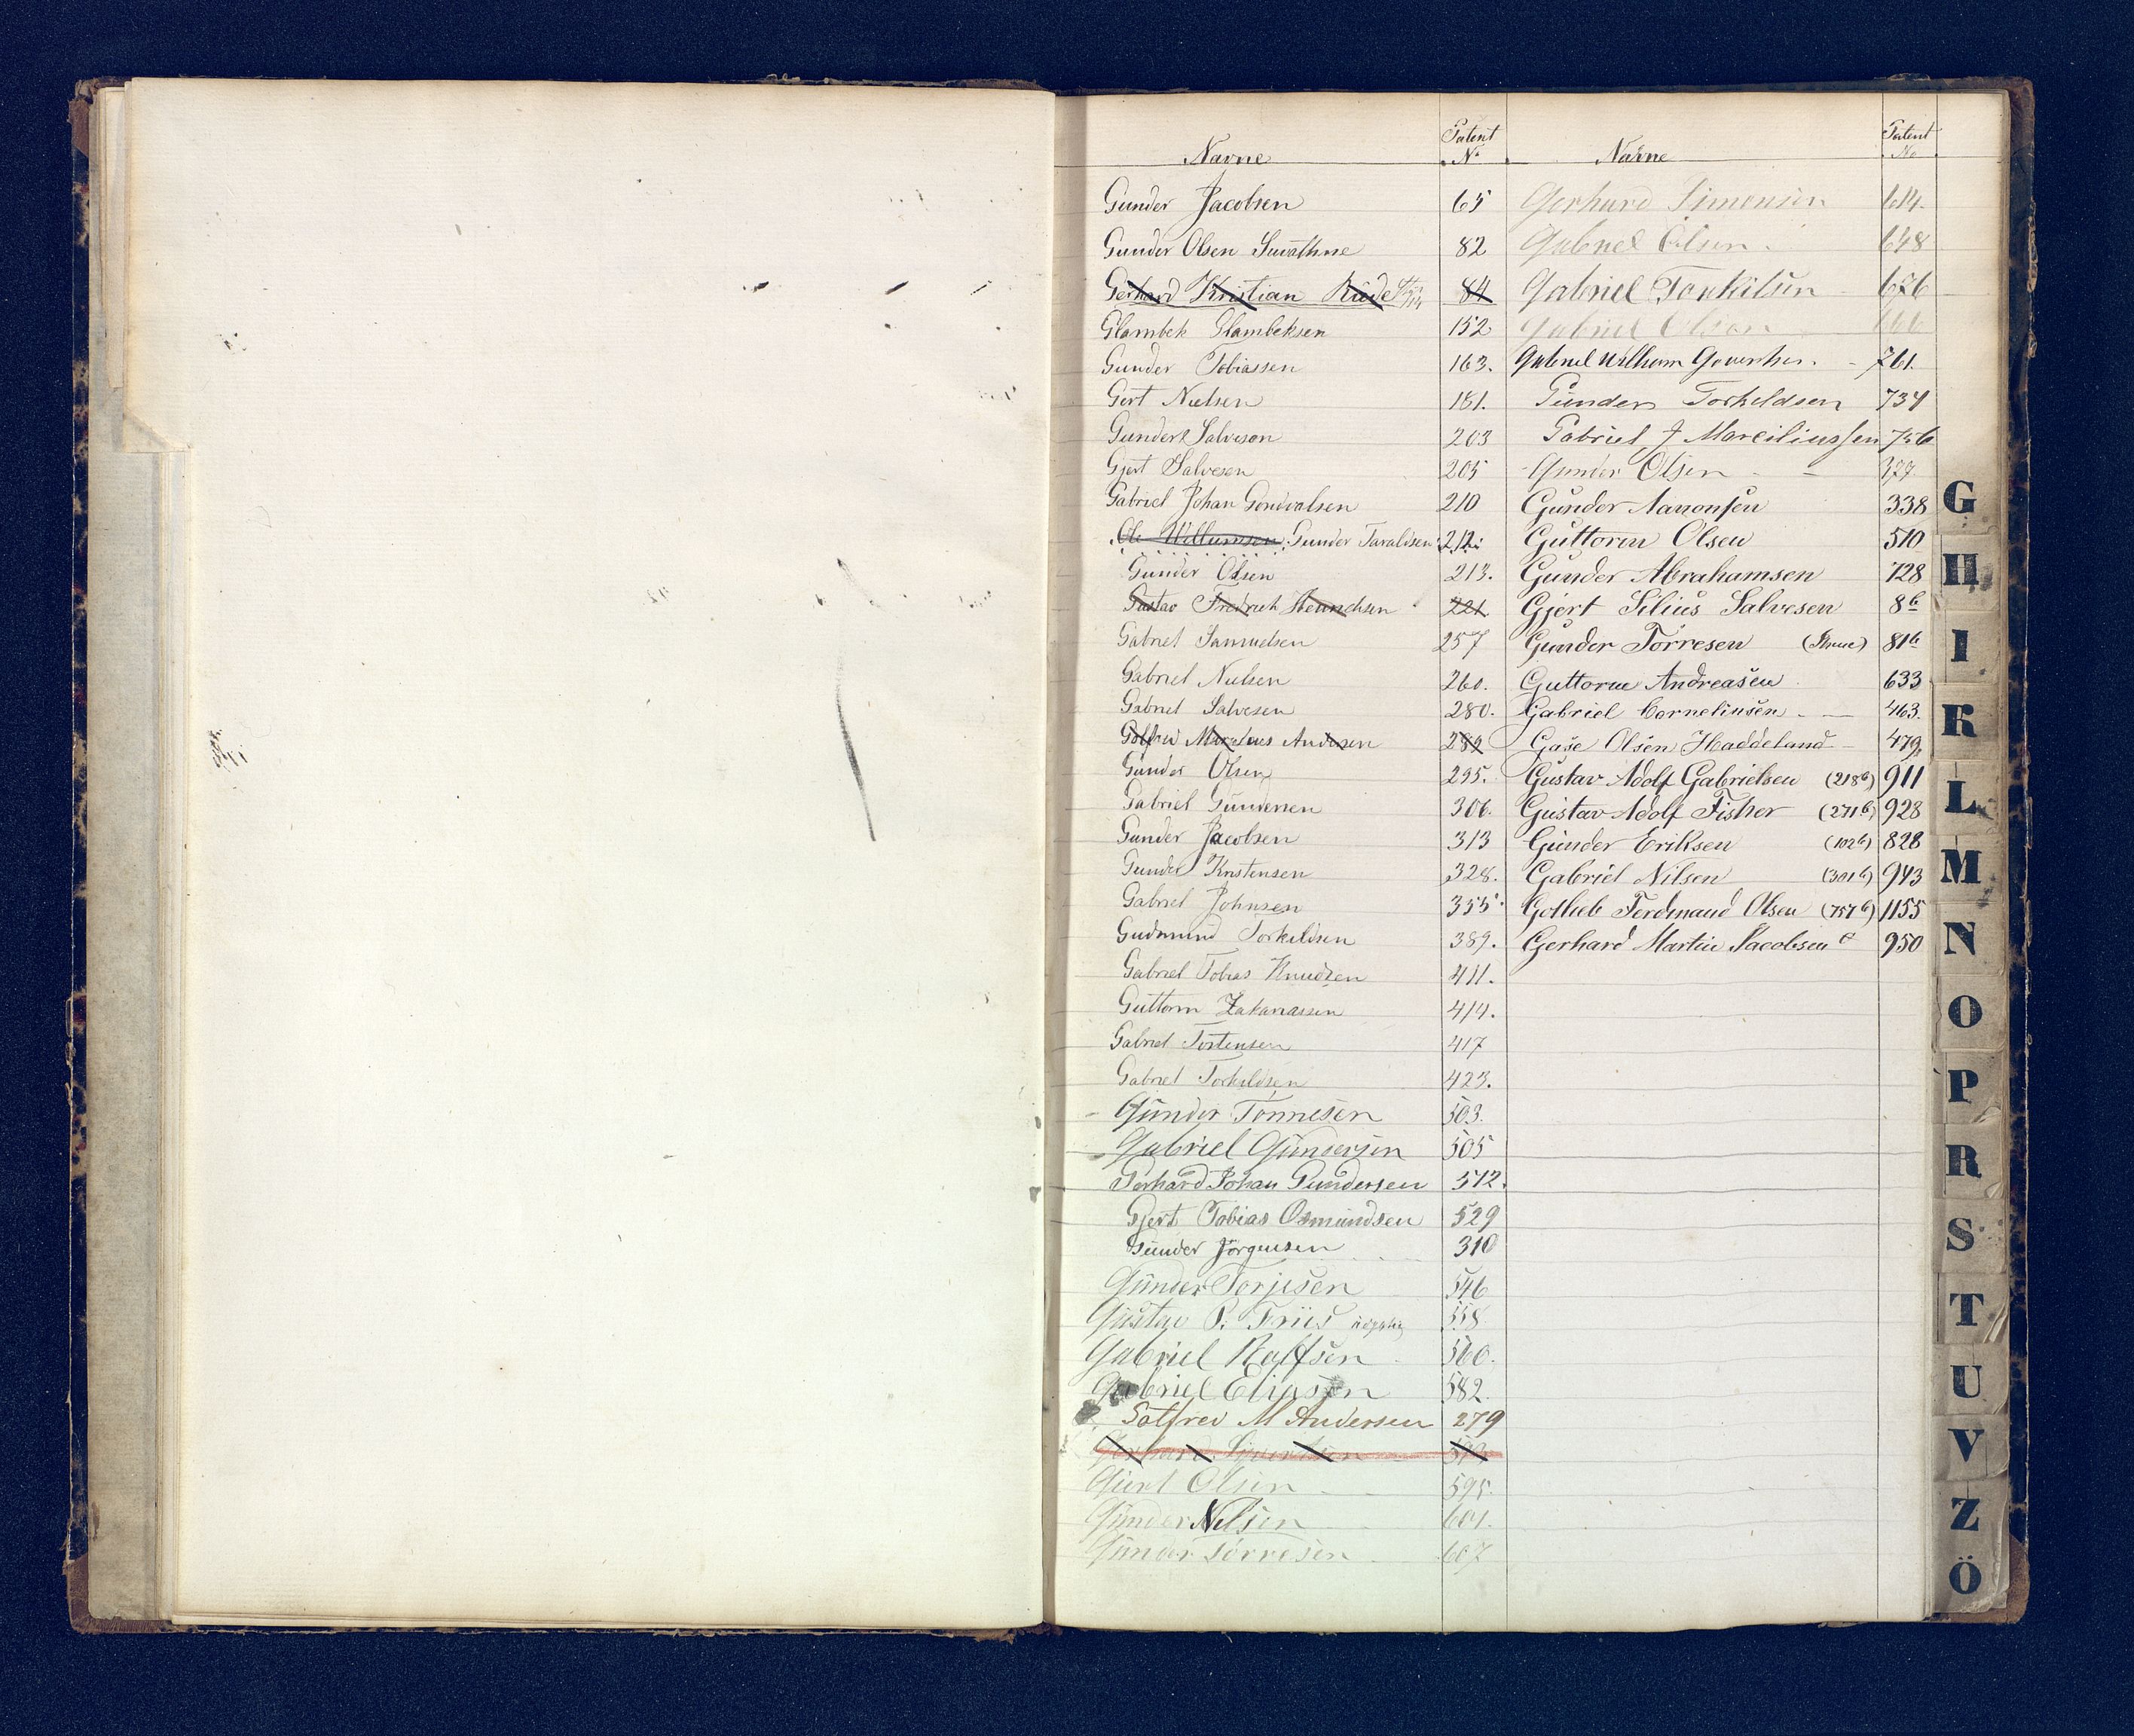 Navne Patent No
Gunder Jacobsen 65
Gunder Olsen 82
Gerhard Kristian 84
Glambek Glambeksen 152
Gunder Tobiassen 163.
Gert Nielsen 181.
Gunder Salveson 203
Gjert Salvesen 205
Gabriel Johan Gondvalsen 210
Ole Willumsen Gunder Taraldsen 212
Gunder Olsen 213.
Gustav Fredrick Henrichsen 221
Gabriel Samuelsen 257
Gabriel Nielsen 260.
Gabriel Salvesen 280.
Golfred Marelius Andersen 289
Gunder Olsen 295.
Gabriel Gundersen 306.
Gunder Jacobsen 313
Gunder Kristensen 328.
Gabriel Johnsen 355.
Gudmund Torkildsen 389.
Gabriel Tobias Knudsen 411.
Guttorm Zakariassen 414.
Gabriel Tostensen 417
Gabriel Torkildsen 423.
Gunder Tönnesen 503.
Gabriel Gundersen 505
Gerhard Johan Gundersen 512.
Gjert Tobias Osmundsen 529
Gunder Jörgensen 310
Gunder Torjesen 546
Gustav P. Friis 558
Gabriel Rolfsen 560.
Gabriel Eliasen 582.
Golfred M Andersen 279
Gerhard Sivertsen
Gjert Olsen 595.
Gunder Nilsen 601.
Gunder Torresen 607
Navne Patent No
Gerhard Simonsen 614.
Gabriel Olsen 648
Gabriel Torkilsen 676
Gabriel Olsen
Gabriel Wilhelm 761.
Gunder Torkildsen 734
Gabriel J Marciliussen 756
Gunder Olsen 377
Gunder Aanonsen 338
Guttorm Olsen 510
Gunder Abrahamsen 728
Gjert Silius Salvesen 8b
Gunder Torresen 81b
Guttorm Andreasen 633
Gabriel Corneliusen 463.
Gase Olsen Haddeland 479
Gustav Adolf Gabrielsen (218b) 911
Gustav Adolf Fisher (271b) 928
Gunder Eriksen (102b) 828
Gabriel Nilsen (301b) 943
Gotlieb Ferdinand Olsen (757b) 1155
Gerhard Martin Jacobsen 950
G
H
I
K
L
M
N
O
P
R
S
T
U
V
Z
Ö